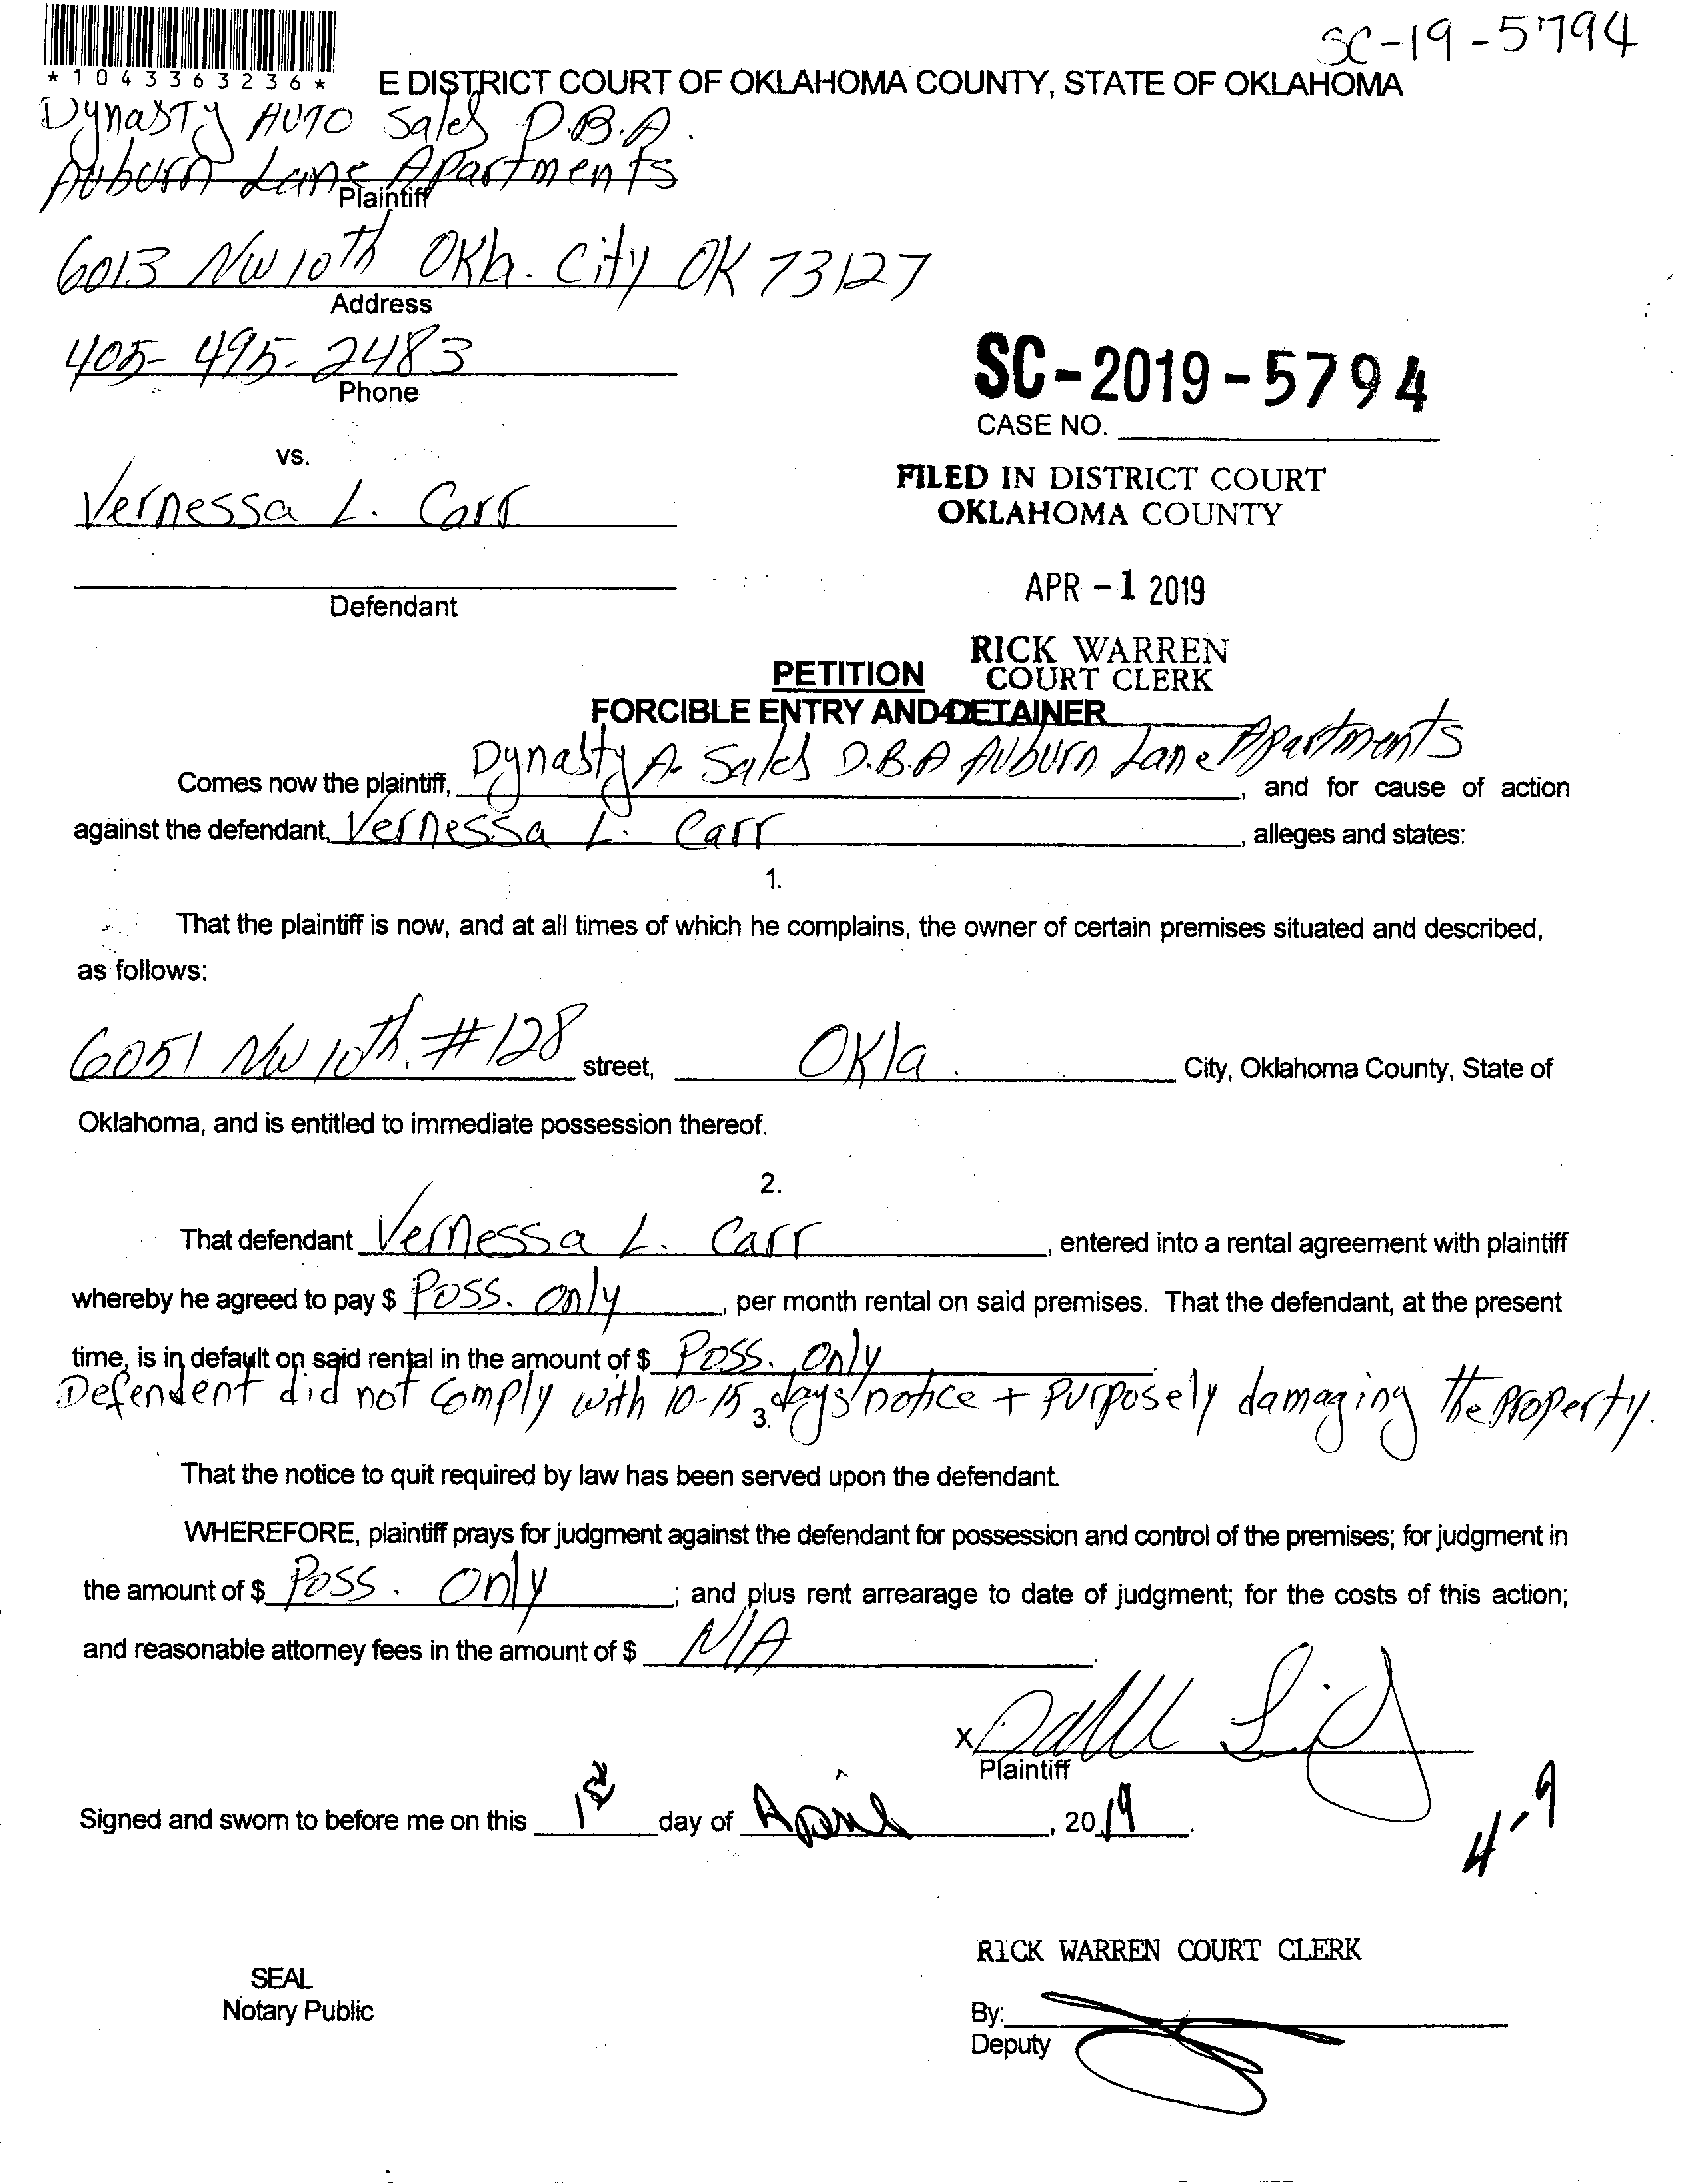 SC-19-5794
*1043363236*
E DISTRICT COURT OF OKLAHOMA COUNTY, STATE OF OKLAHOMA
Dynasty Auto Sales D.B.A.
Auburn Lane Apartments
Plaintiff
6013 NW 10th Okla. City OK 73127
Address
405-495-2483
Phone
SC-2019-5794
CASE NO.
vs.
Vernessa L. Carr
FILED IN DISTRICT COURT
OKLAHOMA COUNTY
Defendant
APR -1 2019
RICK WARREN
COURT CLERK
PETITION
FORCIBLE ENTRY AND DETAINER
Comes now the plaintiff, Dynasty A. Sales D.B.A Auburn Lane Apartments, and for cause of action
against the defendant, Vernessa L. Carr, alleges and states:
1.
That the plaintiff is now, and at all times of which he complains, the owner of certain premises situated and described,
as follows:
6051 NW 10th. #128 street, Okla. City, Oklahoma County, State of
Oklahoma, and is entitled to immediate possession thereof.
2.
That defendant Vernessa L. Carr, entered into a rental agreement with plaintiff
whereby he agreed to pay $ Poss. only, per month rental on said premises. That the defendant, at the present
time, is in default on said rental in the amount of $ Poss. only
Defendent did not comply with 10-15 days notice + purposely damaging the property.
3.
That the notice to quit required by law has been served upon the defendant.
WHEREFORE, plaintiff prays for judgment against the defendant for possession and control of the premises; for judgment in
the amount of $ Poss. only; and plus rent arrearage to date of judgment; for the costs of this action;
and reasonable attorney fees in the amount of $ N/A.
X
Plaintiff
Signed and sworn to before me on this 1st day of April, 2019.
4-9
RICK WARREN COURT CLERK
SEAL
Notary Public
By:
Deputy